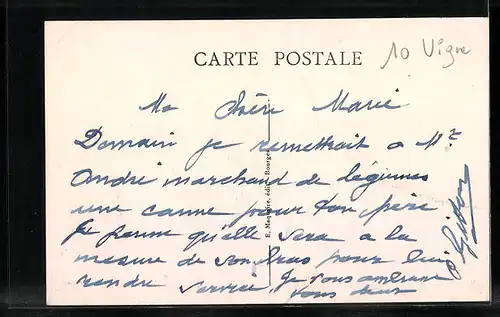 CARTE POSTALE
10 Vigne
Ma Chère Marie
Domain je remettrait a Mr
André marchand de légumes
une canne pour ton père
Je pense qu'elle sera a la
mesure de son bras pour lui
rendre service. Je vous embrasse
vous deux
E. Maquaire, édit., Bourges